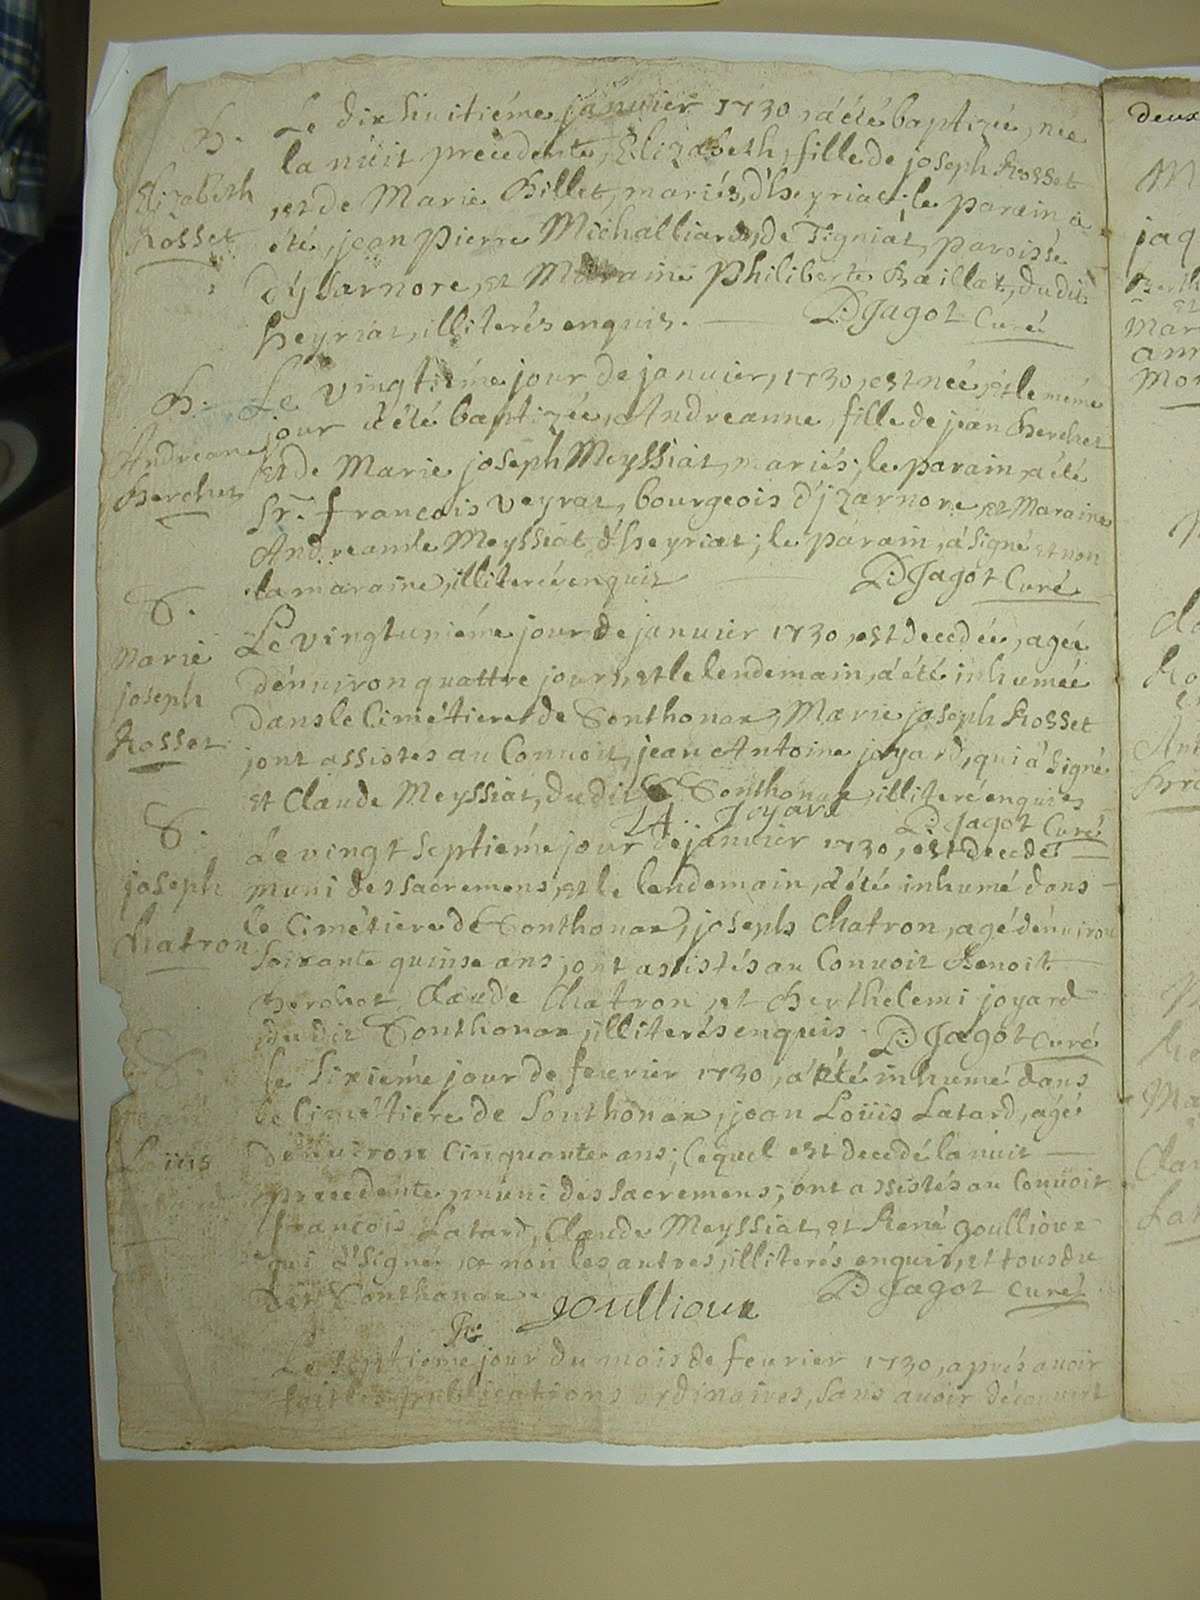 B.
Elizabeth
Rosset
Le dixhuitiéme janvier 1730, a été baptizée, née
la nuit precedente, Elizabeth, fille de joseph Rosset
et de Marie Billet, mariés, d'heyriat; le parain a
été, jean pierre Michalliard, de Tigniat, paroisse
d'ysarnore, et Maraine Philiberte Baillat, dudit
heyriat, illiterés enquis. D: Jagot Curé
B.
Andreanne
Berchet
Le vingtiéme jour de janvier, 1730, est née, et le méme
jour a été baptizée, Andreanne, fille de jean Berchet
et de Marie joseph Meyssiat, mariés; le parain, a été
Sr. francois veyrat, bourgeois d'jzarnore, et Maraine
Andreanne Meyssiat, d'heyriat; le parain, a signé et non
la maraine, illiterée enquis D: Jagot Curé
S.
Marie
joseph
Rosset
Le vingtuniéme jour de janvier 1730, est decedée, agée
d'énuiron quattre jours, et le lendemain, a été inhumée
dans le Cimétiere de Sonthonax, Marie joseph Rosset
, ont assistes au Conuoit, jean Antoine joyard, qui a signé
et Claude Meyssiat, dudit Sonthonax, illiteré enquis
J A Joyard D: Jagot Curé
S.
joseph
Chatron
Le vingt septiéme jour de janvier 1730, est decedé
muni des sacremens, et le lendemain, a été inhumé dans
le Cimétiere de Sonthonax, joseph Chatron, agé d'énuiron
soixante quinse ans; ont assistés au Conuoit Benoit
Berchet, Claude Chatron, et Berthelemi joyard
dudit Sonthonax, illiterés enquis. D: Jagot Curé
S.
Loüis
le sixiéme jour de feurier 1730, a été inhumé dans
le Cimétiere de Sonthonax, jean Loüis Latard, agé
d'énuiron Cinquante ans; lequel est decedé la nuit
precedente, muni des sacremens; ont assistés au Conuoit
francois Latard, Claude Meyssiat, et René Joullioux
qui a signé, et non les autres, illiterés enquis, et tous du
dit Sonthonax. D: Jagot Curé
Joullioux
Le septieme jour du mois de feurier 1730, aprés auoir
fait les publications ordinaires, sans auoir découuert
deux